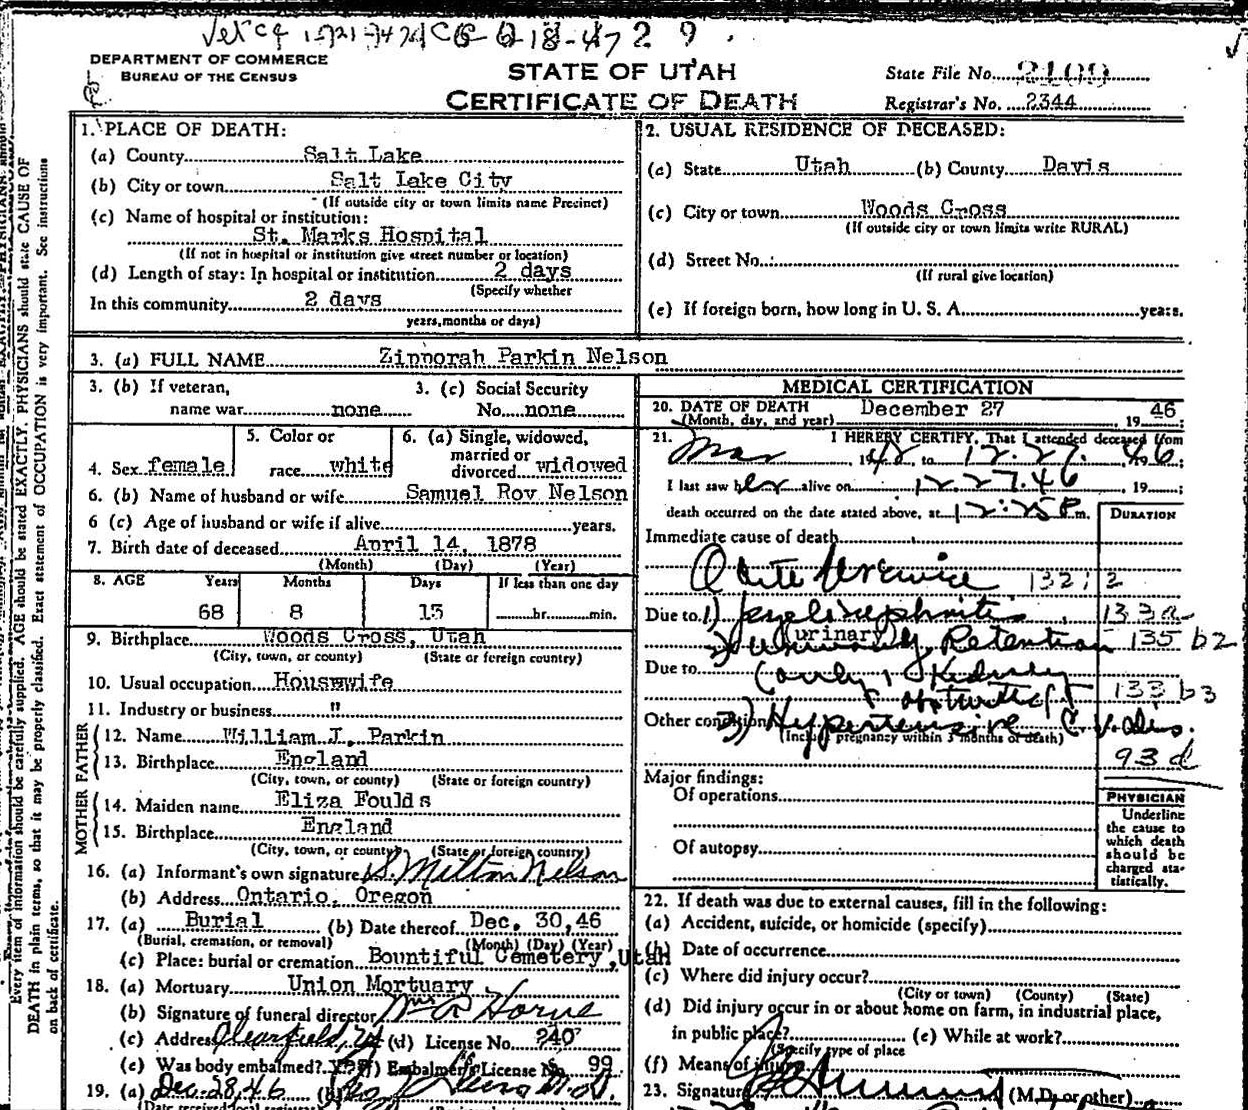 DEPARTMENT OF COMMERCE
BUREAU OF THE CENSUS
STATE OF UTAH
CERTIFICATE OF DEATH
State File No.
Registrar's No. 2344
1. PLACE OF DEATH:
(a) County Salt Lake
(b) City or town Salt Lake City
(If outside city or town limits name Precinct)
(c) Name of hospital or institution:
St. Marks Hospital
(If not in hospital or institution give street number or location)
(d) Length of stay: In hospital or institution 2 days
(Specify whether
In this community 2 days
years, months or days)
2. USUAL RESIDENCE OF DECEASED:
(a) State Utah (b) County Davis
(c) City or town Woods Cross
(If outside city or town limits write RURAL)
(d) Street No.:
(If rural give location)
(e) If foreign born, how long in U. S. A. years.
3. (a) FULL NAME Zipporah Parkin Nelson
3. (b) If veteran,
name war none
3. (c) Social Security
No. none
4. Sex female
5. Color or
race white
6. (a) Single, widowed,
married or
divorced widowed
6. (b) Name of husband or wife Samuel Roy Nelson
6 (c) Age of husband or wife if alive years.
7. Birth date of deceased April 14, 1878
(Month) (Day) (Year)
8. AGE Years Months Days If less than one day
68 8 13 hr. min.
9. Birthplace Woods Cross, Utah
(City, town, or county) (State or foreign country)
10. Usual occupation Housewife
11. Industry or business "
FATHER
12. Name William J. Parkin
13. Birthplace England
(City, town, or county) (State or foreign country)
MOTHER
14. Maiden name Eliza Foulds
15. Birthplace England
(City, town, or county) (State or foreign country)
16. (a) Informant's own signature S. Milton Nelson
(b) Address Ontario, Oregon
17. (a) Burial (b) Date thereof Dec. 30, 46
(Burial, cremation, or removal) (Month) (Day) (Year)
(c) Place: burial or cremation Bountiful Cemetery, Utah
18. (a) Mortuary Union Mortuary
(b) Signature of funeral director Horne
(c) Address Clearfield, Ut (d) License No. 240
(e) Was body embalmed? (f) Embalmer's License No. 99
19. (a) Dec. 28, 46 (b)
(Date received local registrar)
MEDICAL CERTIFICATION
20. DATE OF DEATH December 27 1946
(Month, day, and year)
21. I HEREBY CERTIFY, That I attended deceased from
Mar 1942, to 12.27. 1946;
I last saw her alive on 12.27.46 19 ;
death occurred on the date stated above, at 12:25 P.m.
DURATION
Immediate cause of death
Acute Uremia 132;2
Due to 1) pyelonephritis 133a
(urinary)
2) Urinary Retention 135 b2
Due to (only 1 Kidney
133 b3
Other condition 3) Hypertensive C.V. dis.
(Include pregnancy within 3 months of death)
93d
Major findings:
Of operations
Of autopsy
PHYSICIAN
Underline
the cause to
which death
should be
charged sta-
tistically.
22. If death was due to external causes, fill in the following:
(a) Accident, suicide, or homicide (specify)
(b) Date of occurrence
(c) Where did injury occur?
(City or town) (County) (State)
(d) Did injury occur in or about home on farm, in industrial place,
in public place? (e) While at work?
(Specify type of place
(f) Means of injury
23. Signature (M.D. or other)
Every item of information should be carefully supplied. AGE should be stated EXACTLY. PHYSICIANS should state CAUSE OF
DEATH in plain terms, so that it may be properly classified. Exact statement of OCCUPATION is very important. See instructions
on back of certificate.